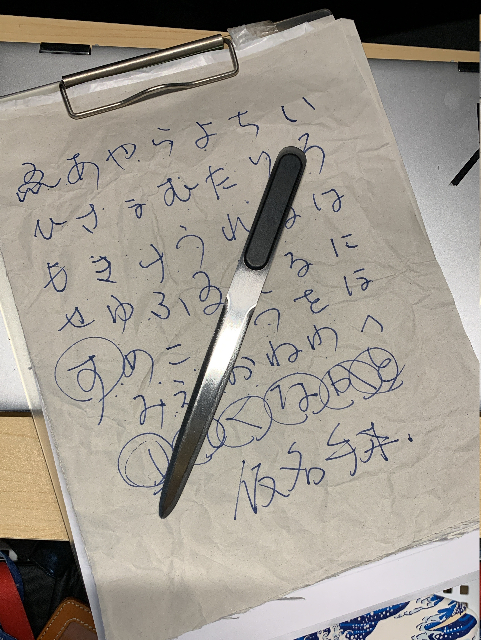 いろはにほへと
ちりぬるをわか
よたれそつねな
らむうゐのおく
やまけふこえて
あさきゆめみし
ゑひもせす
仮名手本.